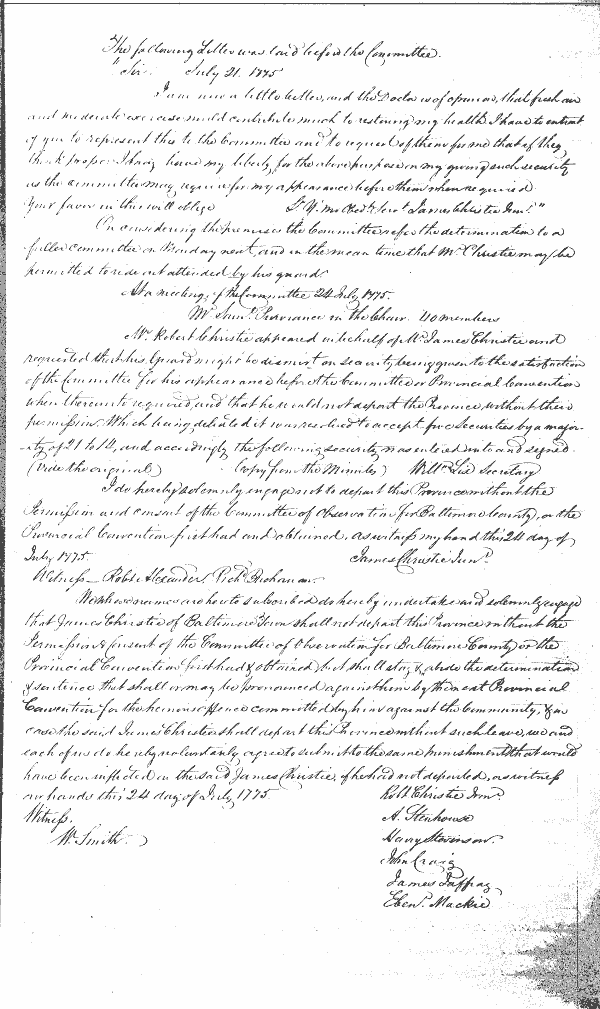 The following Letter was laid before the Committee.
"Sir. July 21. 1775
I am now a little better, and the Doctor is of opinion, that fresh air
and moderate exercise would contribute much to restoring my health. I have to intreat
of you to represent this to the Committee and to request of them for me that if they
think proper I having have my liberty for the above purpose on my giving such security
as the committee may agree for my appearance before them when required
Your favor in this will oblige James Christie Junr."
On considering the premises the Committee refer the determination to a
fuller committee on Monday next, and in the mean time that Mr. Christie may be
permitted to ride out attended by his guard
At a meeting of the Committee 24 July 1775.
Mr. Saml. Purviance in the Chair. 40 members
Mr. Robert Christie appeared in behalf of Mr. James Christie and
requested that his Guard might be dismist on security being given to the satisfaction
of the Committee for his appearance before the Committee or Provincial Convention
when thereunto required, and that he would not depart the Province without their
permission. Which being debated it was resolved to accept five securities by a major-
-ity of 21 to 14, and accordingly the following security was entered into and signed.
(Vide the original) (Copy from the Minutes) Willm. Lux Secretary
I do hereby solemnly engage not to depart this Province without the
Permission and consent of the Committee of Observation for Baltimore County, or the
Provincial Convention first had and obtained. as witness my hand this 24 day of
July 1775. James Christie Junr.
Witness — Robt. Alexander. Richd. Buchanan.
We whose names are hereto subscribed do hereby undertake and solemnly engage
that James Christie of Baltimore Town shall not depart this Province without the
Permission & Consent of the Committee of Observation for Baltimore County or the
Provincial Convention first had & obtained, but shall stay & abide the determination
& sentence that shall or may be pronounced against him by the next Provincial
Convention for the heinous offence committed by him against the Community, & in
case the said James Christie shall depart this Province without such leave, we and
each of us do hereby voluntarily agree to submit to the same punishment that would
have been inflicted on the said James Christie, if he had not departed, as witness
our hands this 24 day of July 1775. Robt. Christie Junr.
Witness. A. Stenhouse
W. Smith. Henry Stevinson.
John Craig
James Jaffray
Ebenr. Mackie